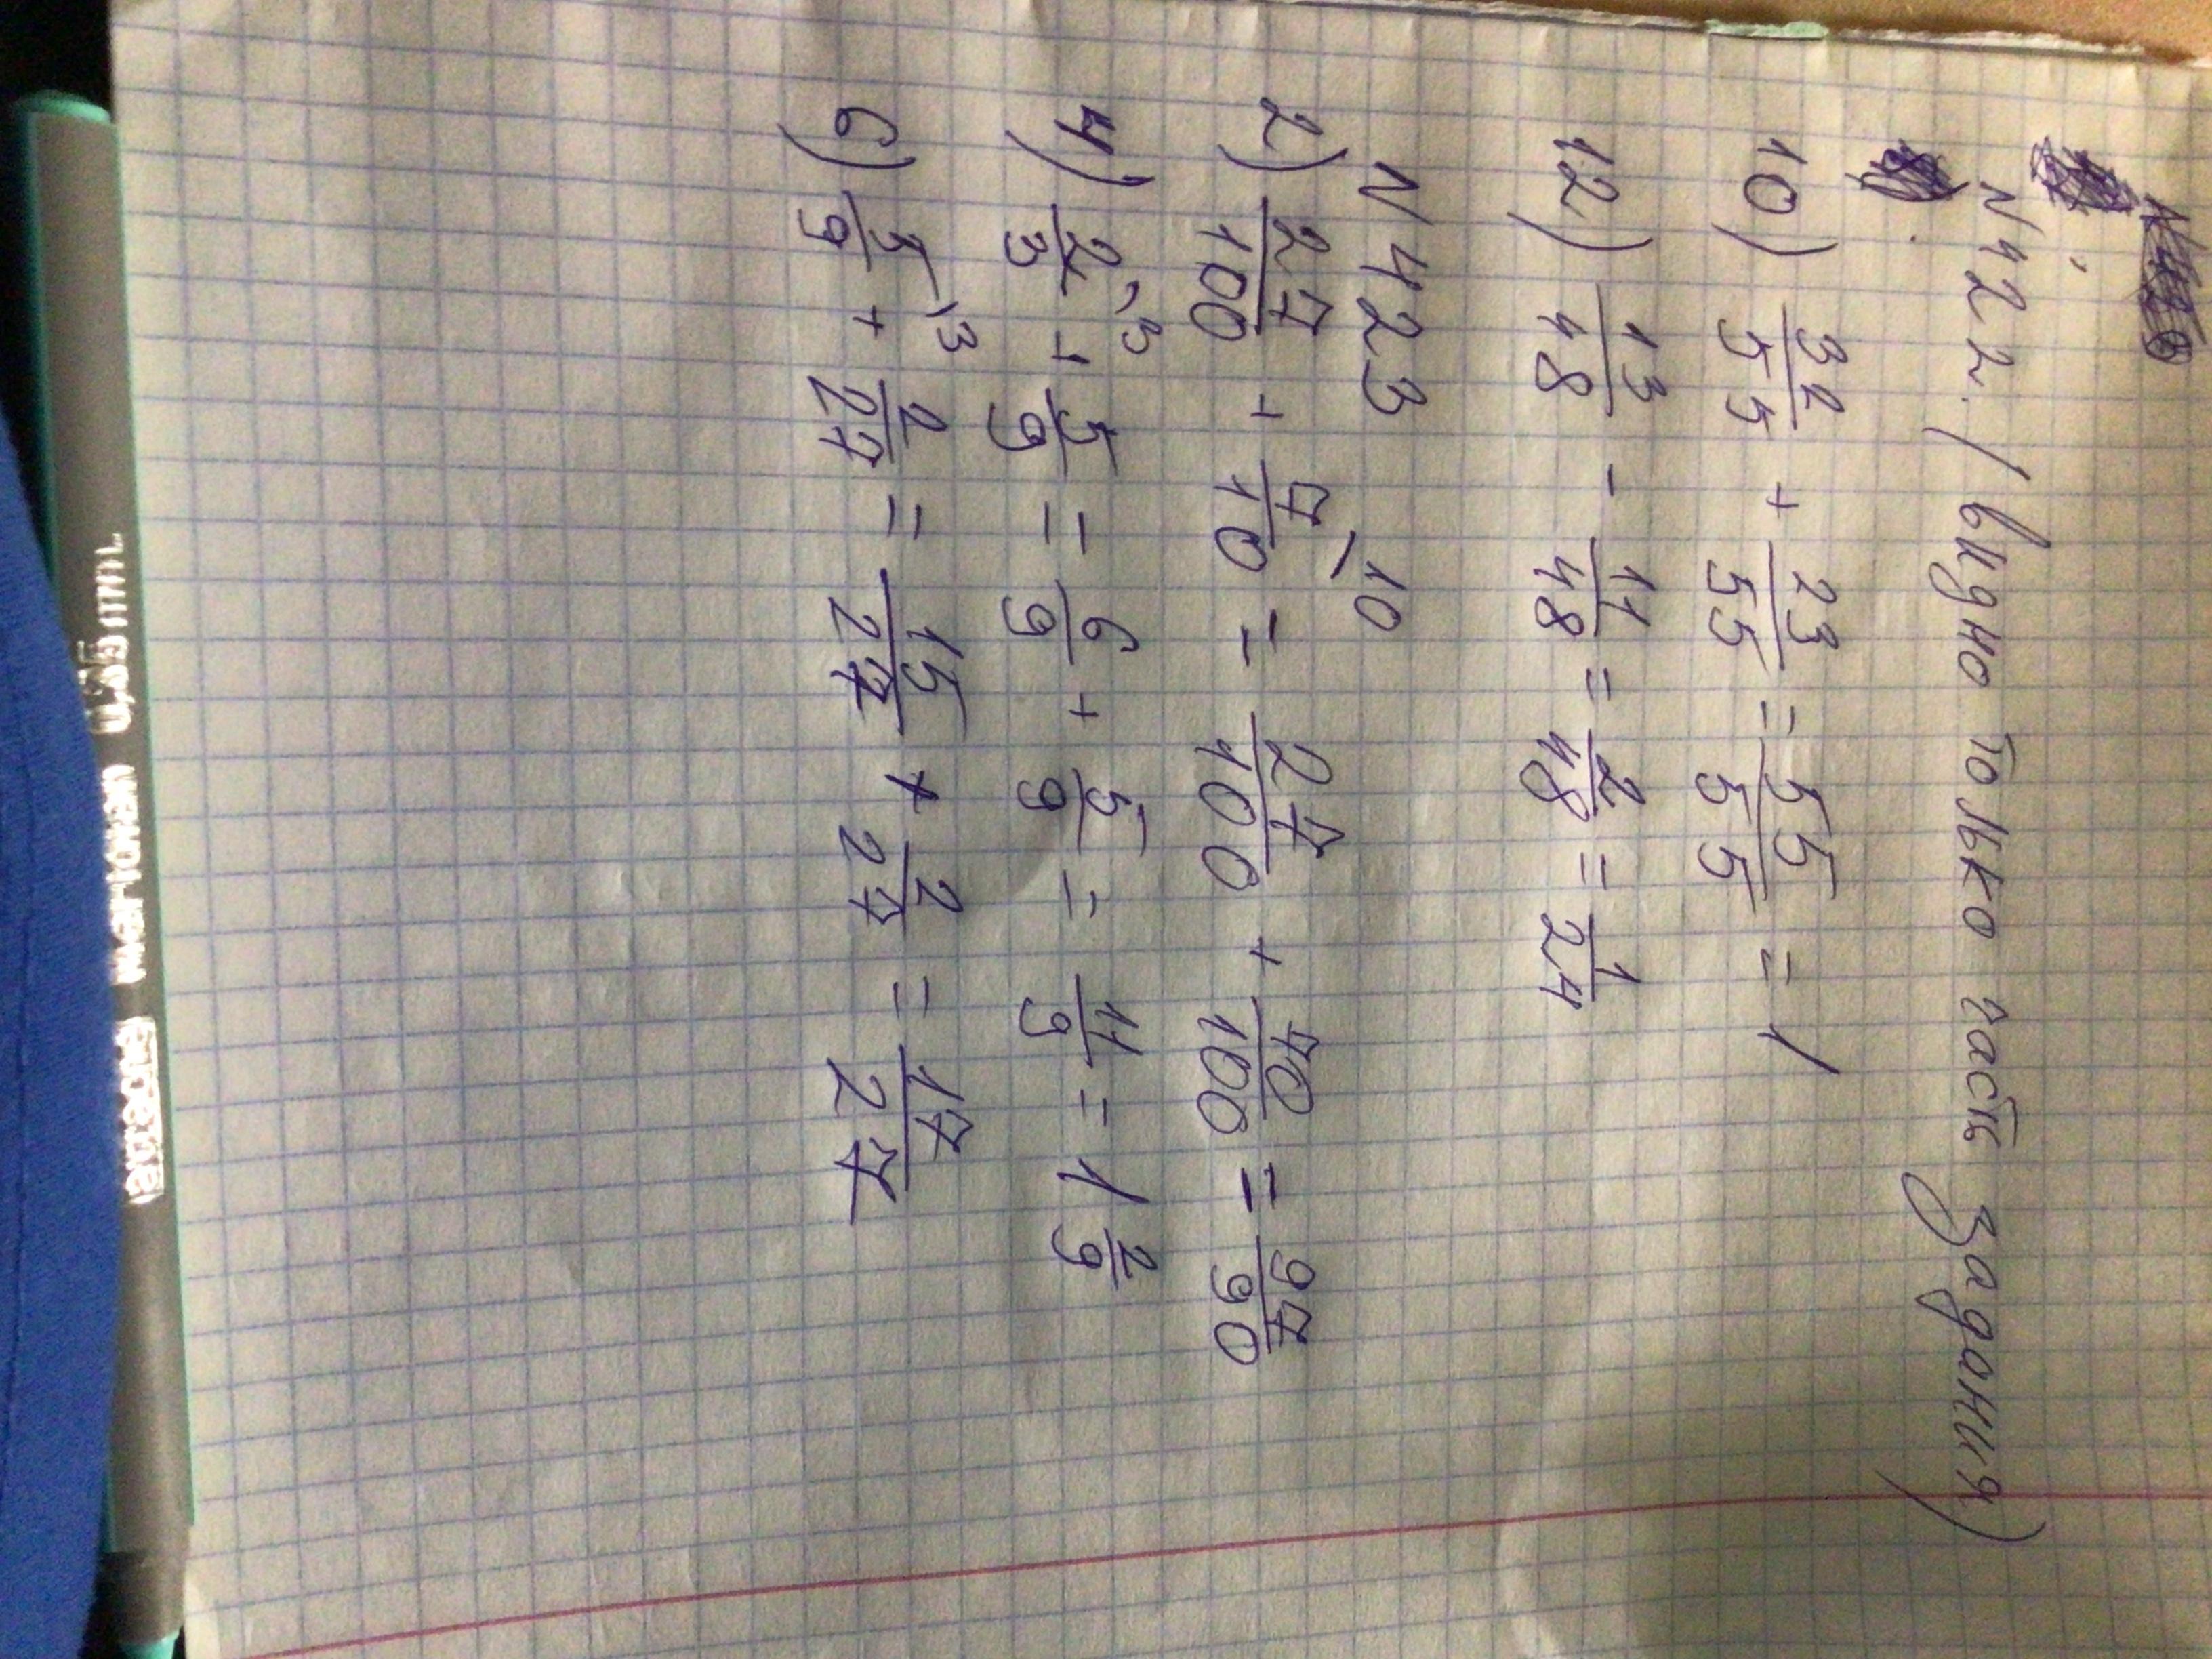 N422. (видно только часть задания)
10) 32/55 + 23/55 = 55/55 = 1
12) 13/48 - 11/48 = 2/48 = 1/24
N423
2) 27/100 + 7/10 \10 = 27/100 + 70/100 = 97/90
4) 2/3 \3 + 5/9 = 6/9 + 5/9 = 11/9 = 1 2/9
6) 5/9 \3 + 2/27 = 15/27 + 2/27 = 17/27